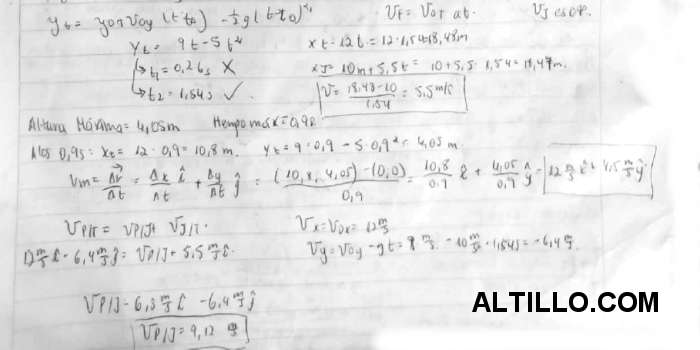 y t = yo + voy (t-to) - 1/2 g (t-to)²   Vt = Vot at.
Yt = 9t - 5t²   x t = 12t = 12 · 1,54 = 18,48m
t1 = 0,26s X   xJ = 10m + 5,5t = 10 + 5,5 · 1,54 = 18,47m.
t2 = 1,54s ✓   V = 18,48-10 / 1,54 = 5,5 m/s
Altura Máxima = 4,05m   max = 0,90
A los 0,9s: xt = 12 · 0,9 = 10,8 m.   yt = 9 · 0,9 - 5 · 0,9² = 4,05 m.
Vm = Δr/Δt = Δx/Δt î + Δy/Δt ĵ = (10,8, 4,05) - (0,0) / 0,9 = 10,8/0,9 î + 4,05/0,9 ĵ = 12 m/s î + 4,5 m/s ĵ
VP/T = VP/J + VJ/T.   Vx = Vox = 12 m/s
12 m/s î - 6,4 m/s ĵ = VP/J + 5,5 m/s î.   Vy = Voy - gt = 9 m/s - 10 m/s · 1,54s = -6,4 m/s.
VP/J = 6,5 m/s î - 6,4 m/s ĵ
ALTILLO.COM
VP/J = 9,12 m/s